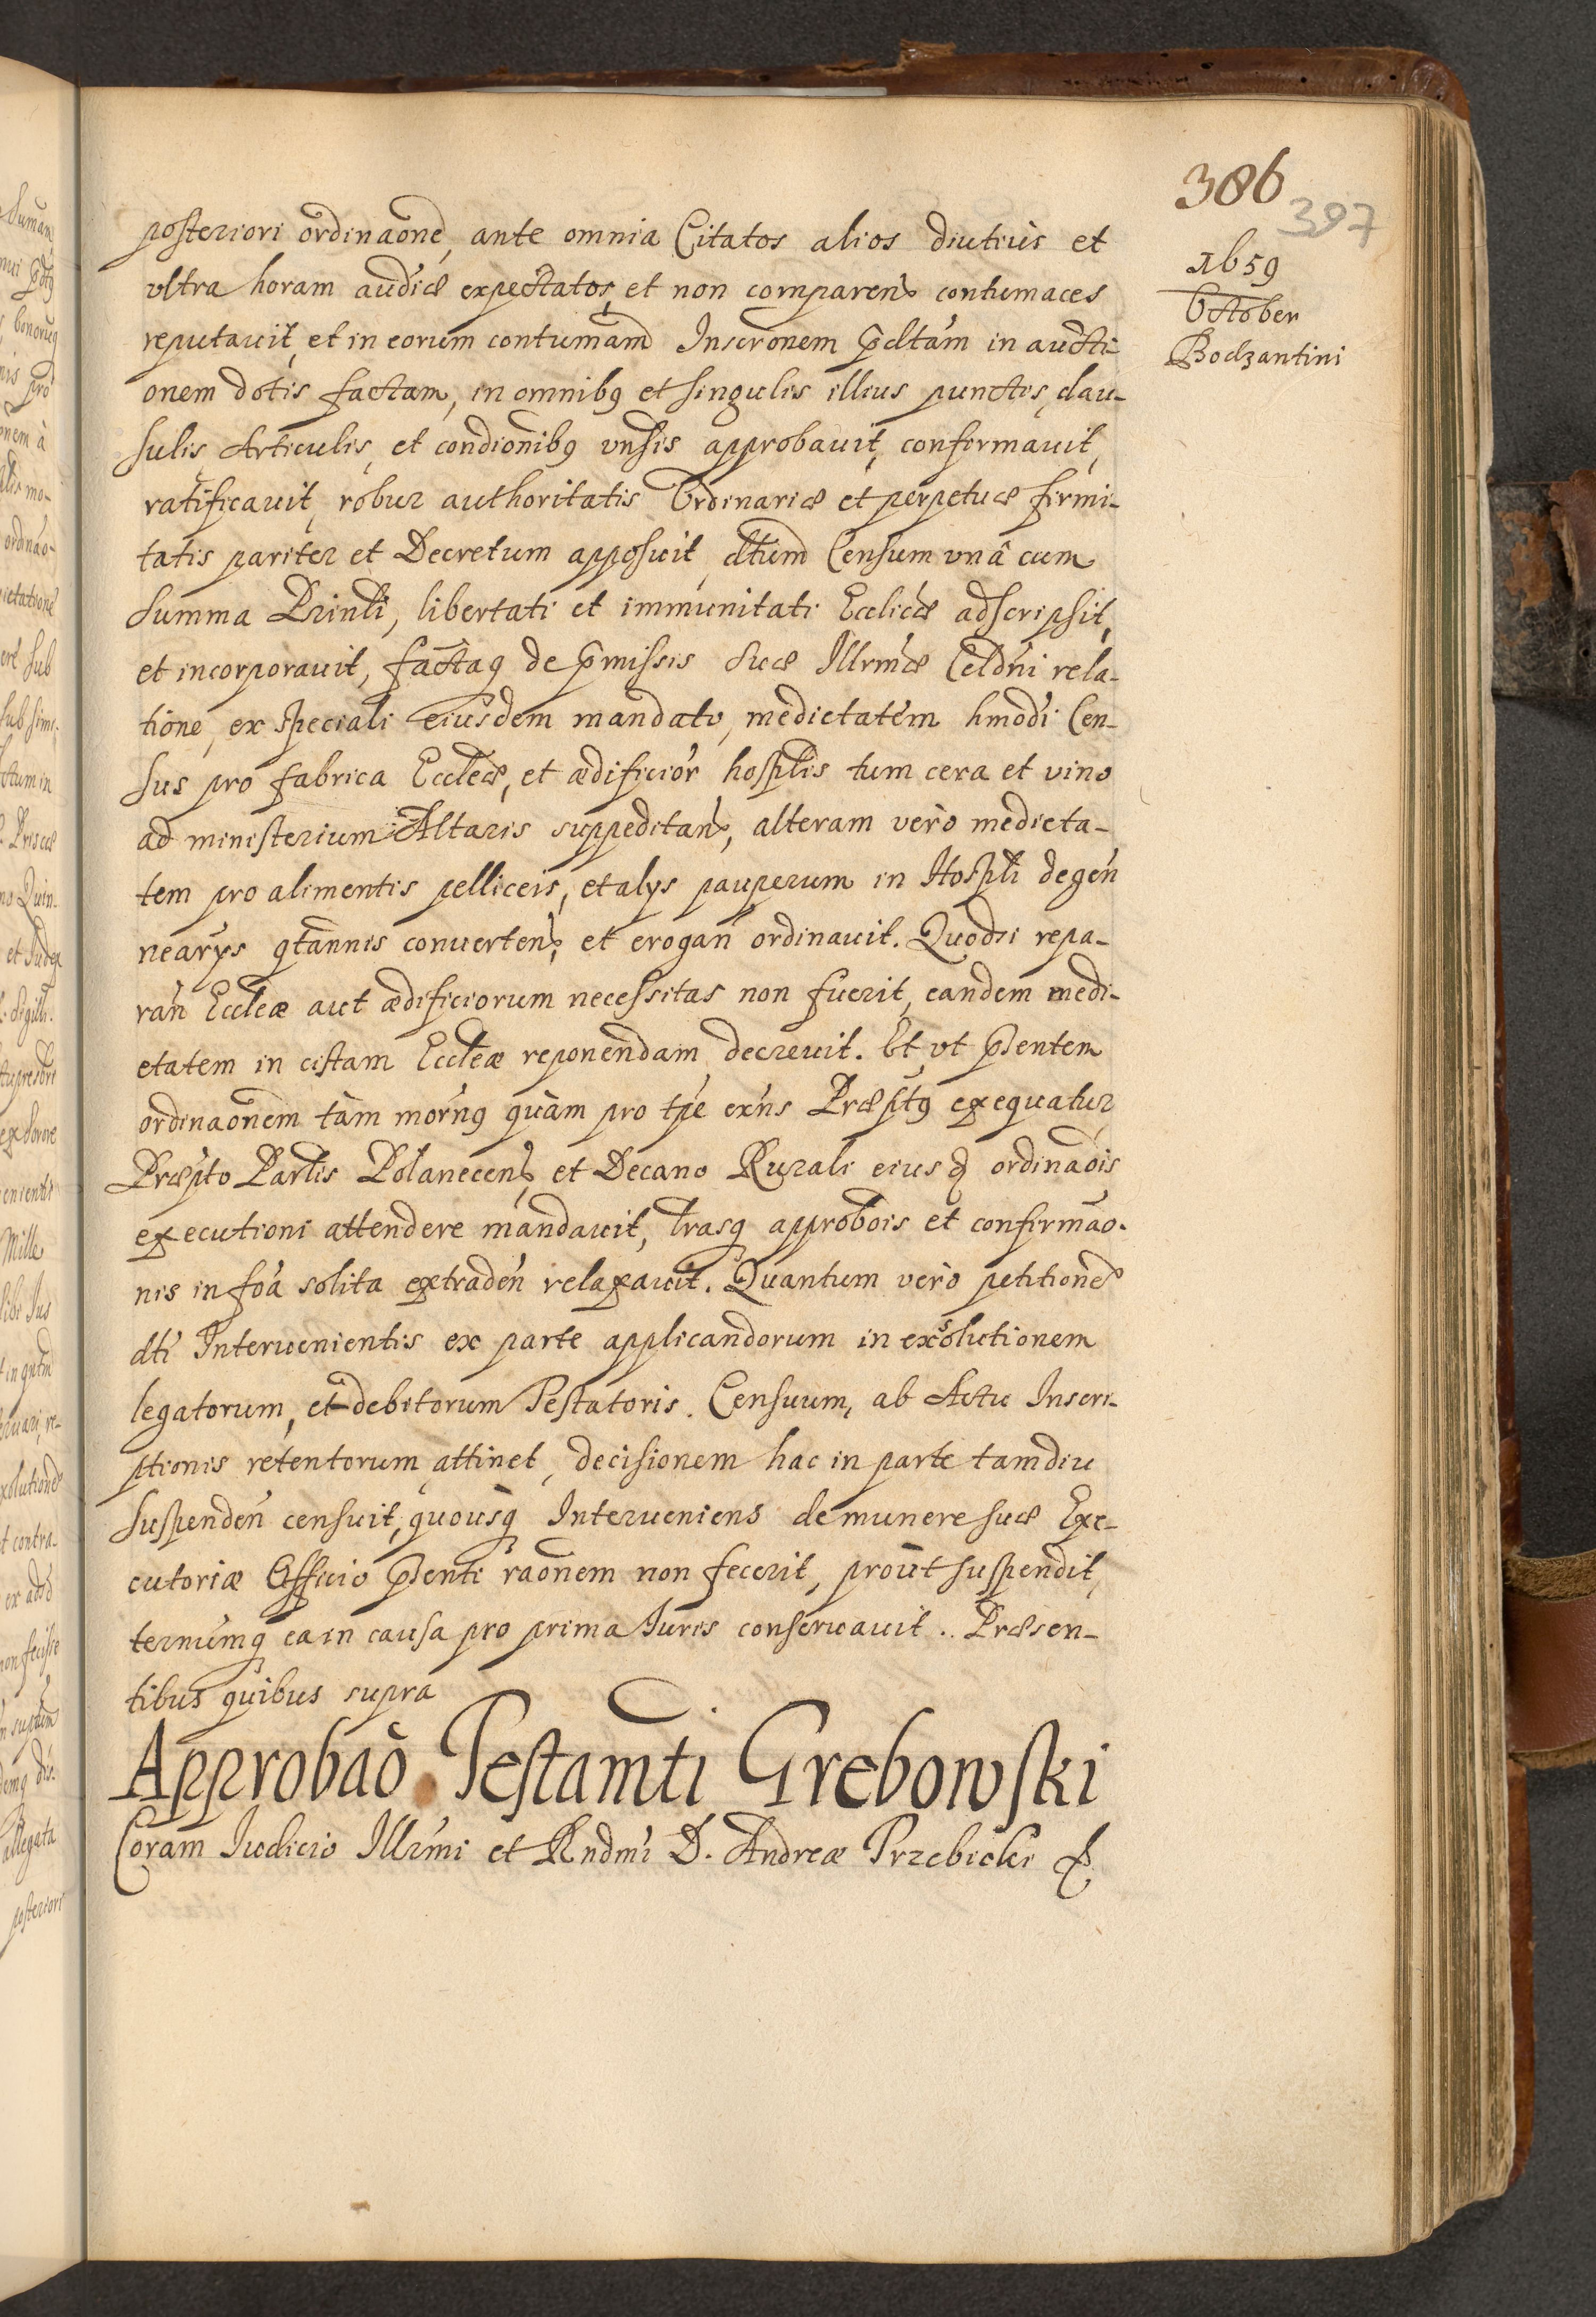 386
397
1659
October
Bodzantini
posteriori ordinaone, ante omnia Citatos alios diutiùs et
vltra horam audiæ expectatos, et non comparen contumaces
reputauit, et in eorum contumam Inscronem pdtam in aucti-
onem dotis factam, in omnibq et singulis illius punctis, clau-
sulis Articulis, et condionibq vnsis approbauit, confirmauit,
ratificauit, robur authoritatis Ordinariæ et perpetuæ firmi-
tatis pariter et Decretum apposuit, dtum Censum vnâ cum
summa Prinli, libertati et immunitati Ecclicæ adscripsit,
et incorporauit, factaq de pmissis suæ Illrmæ Celdni rela-
tione, ex speciali eiusdem mandato, medietatem hmodi Cen-
sus pro fabrica Eccleæ, et ædificior hosplis tum cera et vino
ad ministerium Altaris suppeditan, alteram verò medieta-
tem pro alimentis pelliceis, et alys pauperum in Hospli degen
nearys qtannis conuerten, et erogan ordinauit. Quodsi repa-
ran Eccleæ aut ædificiorum necessitas non fuerit, eandem medi-
etatem in cistam Eccleæ reponendam decreuit. Et vt pentem
ordinaonem tàm mornq quàm pro tpe exns Præptq exequatur
Præpto Parlis Polanecen, et Decano Rurali eiusd ordinaois
executioni attendere mandauit, lrasq approbois et confirmao-
nis in foa solita extraden relaxauit. Quantum verò petitione
dti Interuenientis ex parte applicandorum in exsolutionem
legatorum, et debitorum Testatoris. Censuum, ab Actu Inscri-
ptionis retentorum attinet, decisionem hac in parte tamdiu
suspenden censuit, quousq Interueniens de munere suæ Exe-
cutoriæ Officio pnti raonem non fecerit, proùt suspendit,
terminumq ea in causa pro prima Iuris conseruauit.. Præsen-
tibus quibus supra
Approbaò Testamti Grebowski
Coram Iudicio Illrmi et Rndmi D. Andreæ Trzebicki